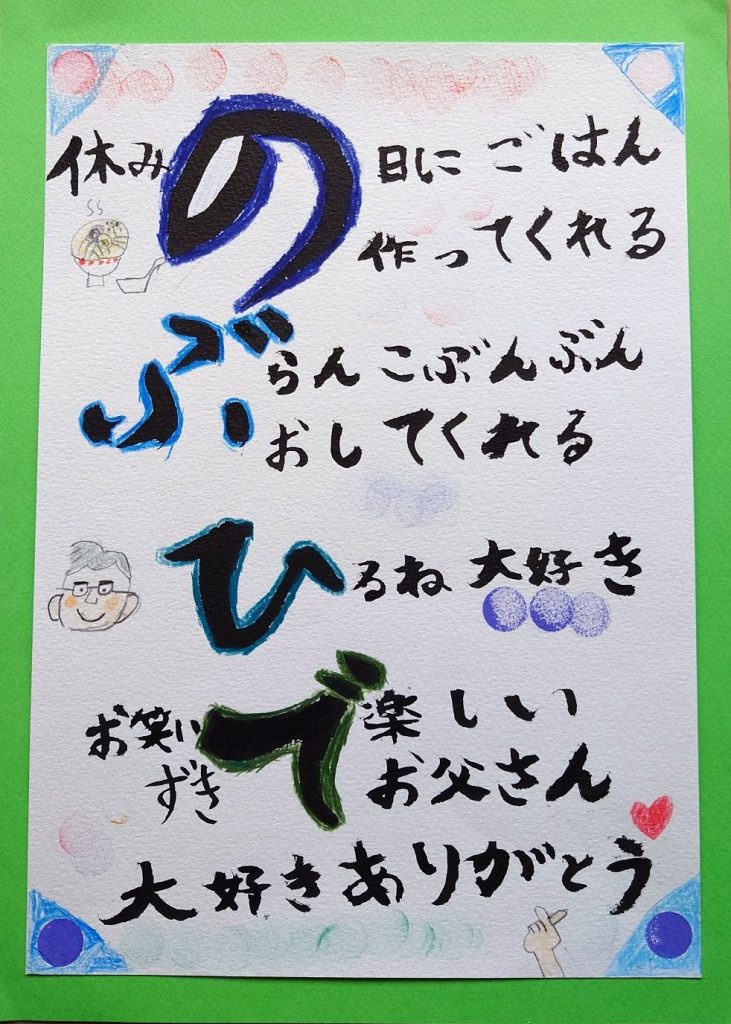 休みの日にごはん
作ってくれる
ぶらんこぶんぶん
おしてくれる
ひるね大好き
お笑いずきで楽しい
お父さん
大好きありがとう